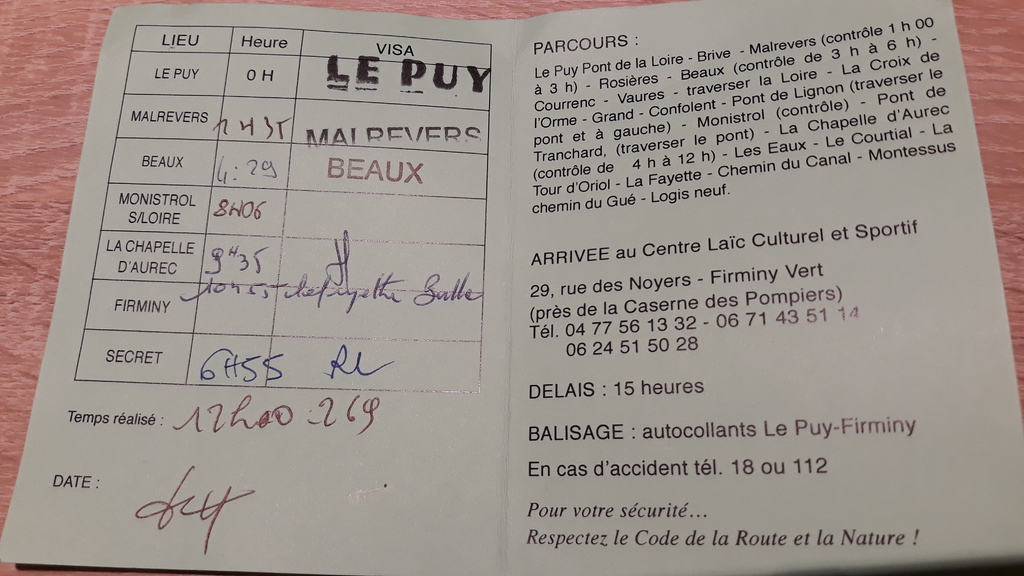 LIEU Heure VISA
LE PUY 0 H LE PUY
MALREVERS 1H35 MALREVERS
BEAUX 4:29 BEAUX
MONISTROL
S/LOIRE 8H06
LA CHAPELLE
D'AUREC 9H35
FIRMINY
SECRET 6H55 RL
Temps réalisé : 12h00 269
DATE :
PARCOURS :
Le Puy Pont de la Loire - Brive - Malrevers (contrôle 1 h 00
à 3 h) - Rosières - Beaux (contrôle de 3 h à 6 h) -
Courrenc - Vaures - traverser la Loire - La Croix de
l'Orme - Grand - Confolent - Pont de Lignon (traverser le
pont et à gauche) - Monistrol (contrôle) - Pont de
Tranchard, (traverser le pont) - La Chapelle d'Aurec
(contrôle de 4 h à 12 h) - Les Eaux - Le Courtial - La
Tour d'Oriol - La Fayette - Chemin du Canal - Montessus
chemin du Gué - Logis neuf.
ARRIVEE au Centre Laïc Culturel et Sportif
29, rue des Noyers - Firminy Vert
(près de la Caserne des Pompiers)
Tél. 04 77 56 13 32 - 06 71 43 51 14
06 24 51 50 28
DELAIS : 15 heures
BALISAGE : autocollants Le Puy-Firminy
En cas d'accident tél. 18 ou 112
Pour votre sécurité...
Respectez le Code de la Route et la Nature !